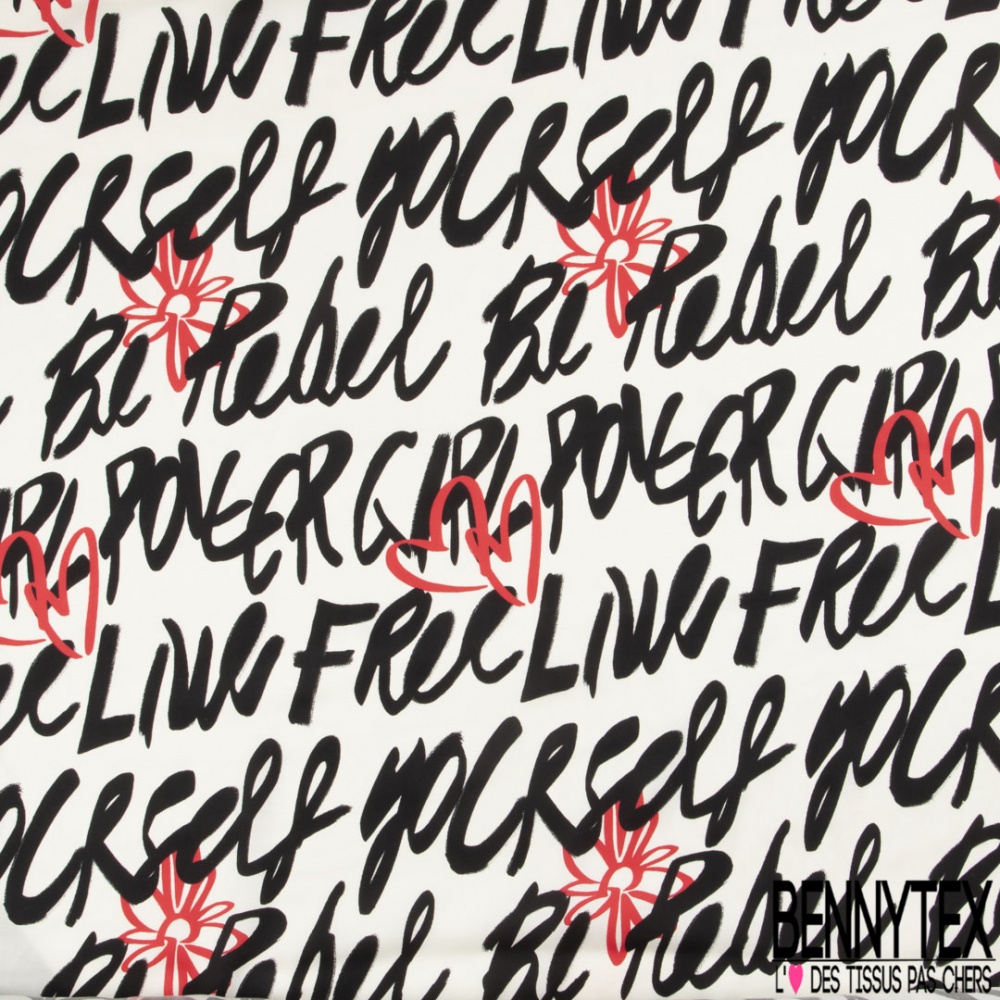 Free Live Free Live Free L
YOURself YOURself YOUR
Be Rebel Be Rebel Be
GIRL POWER GIRL POWER GIRL
Free Live Free Live Free L
YOURself YOURself YOUR
Be Rebel Be Rebel
BENNYTEX
L'♥ DES TISSUS PAS CHERS